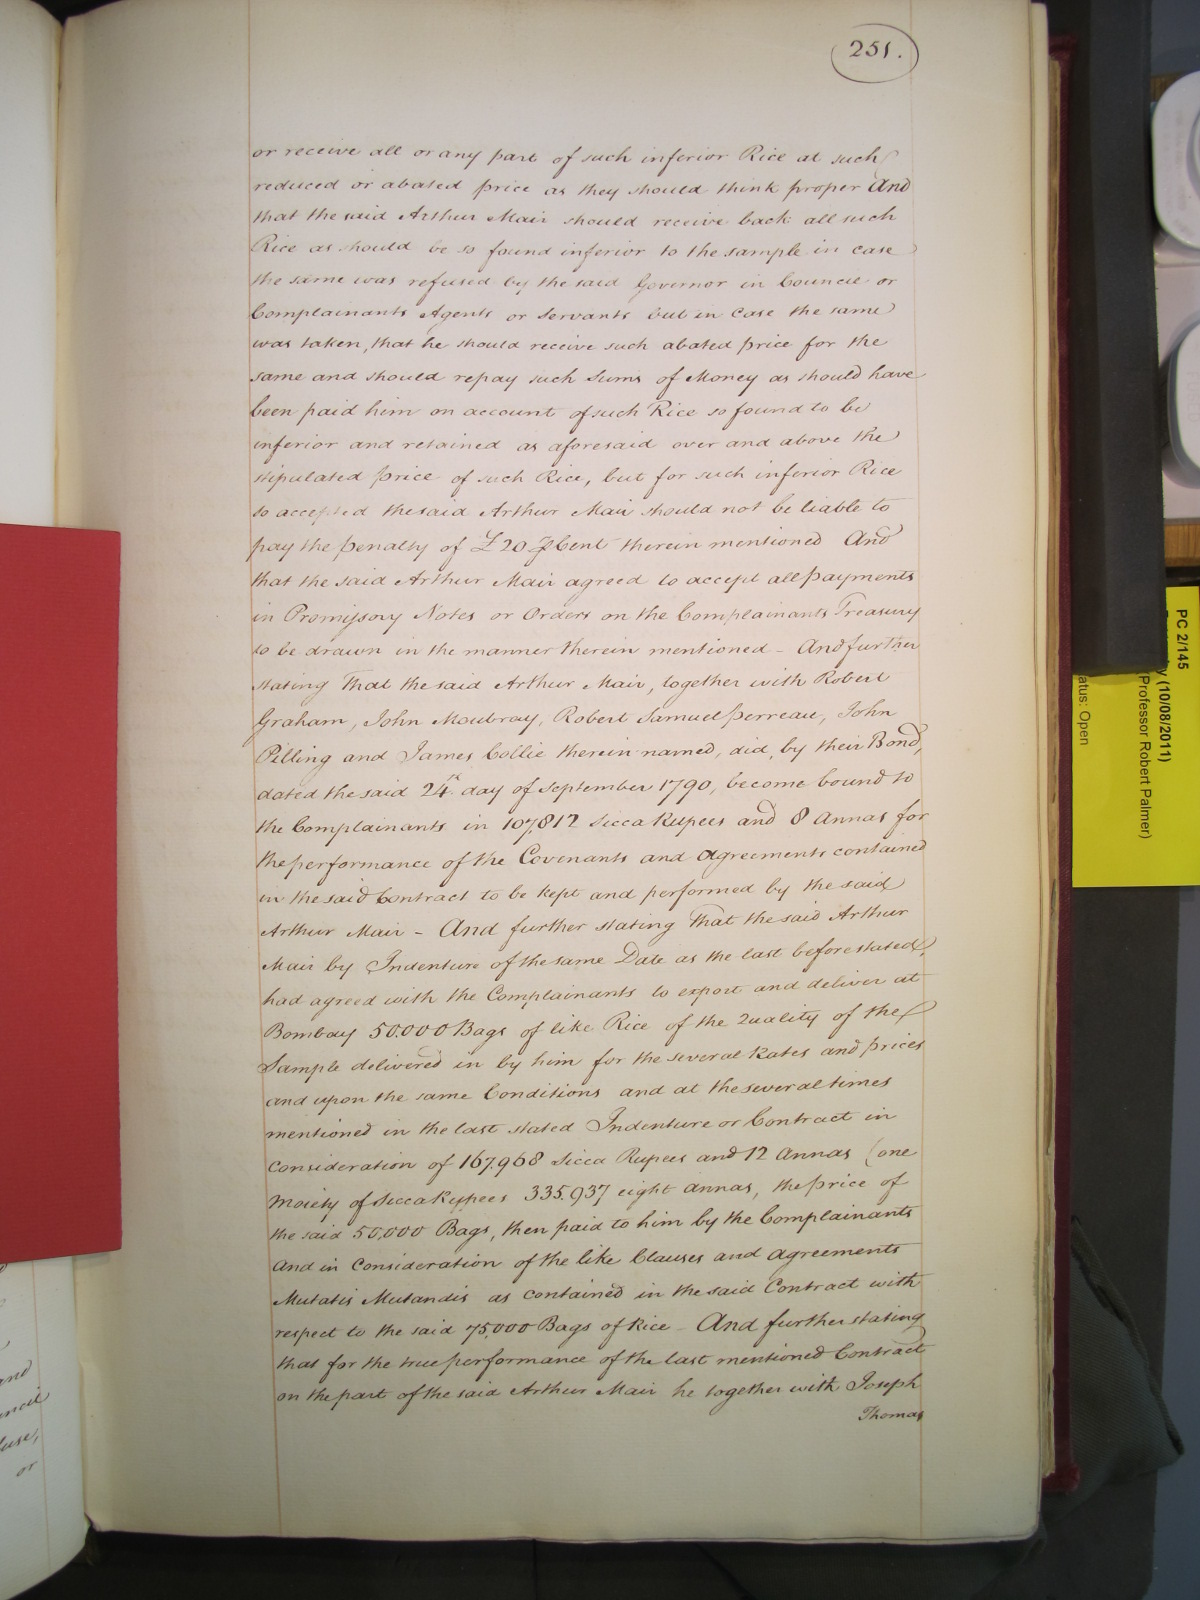 251.
or receive all or any part of such inferior Rice at such
reduced or abated price as they should think proper And
that the said Arthur Mair should receive back all such
Rice as should be so found inferior to the sample in case
the same was refused by the said Governor in Council or
Complainants Agents or Servants but in case the same
was taken, that he should receive such abated price for the
same and should repay such Sums of Money as should have
been paid him on account of such Rice so found to be
inferior and retained as aforesaid over and above the
stipulated price of such Rice, but for such inferior Rice
so accepted the said Arthur Mair should not be liable to
pay the penalty of £20 ⅌ Cent therein mentioned And
that the said Arthur Mair agreed to accept all payments
in Promissory Notes or Orders on the Complainants Treasury
to be drawn in the manner therein mentioned - And further
stating That the said Arthur Mair, together with Robert
Graham, John Moubray, Robert Samuel Perreau, John
Pilling and James Collie therein named, did, by their Bond,
dated the said 24th. day of September 1790, become bound to
the Complainants in 107,812 Sicca Rupees and 8 Annas for
the performance of the Covenants and Agreements contained
in the said Contract to be kept and performed by the said
Arthur Mair - And further stating That the said Arthur
Mair by Indenture of the same Date as the last before stated,
had agreed with the Complainants to export and deliver at
Bombay 50.000 Bags of like Rice of the Quality of the
Sample delivered in by him for the several Rates and prices
and upon the same Conditions and at the several times
mentioned in the last stated Indenture or Contract in
Consideration of 167.968 Sicca Rupees and 12 Annas (one
Moiety of Sicca Rupees 335.937 eight Annas, the price of
the said 50,000 Bags, then paid to him by the Complainants
And in Consideration of the like Clauses and Agreements
Mutatis Mutandis as contained in the said Contract with
respect to the said 75,000 Bags of Rice - And further stating
that for the true performance of the last mentioned Contract
on the part of the said Arthur Mair he together with Joseph
Thomas
and
or
PC 2/145
(10/08/2011)
(Professor Robert Palmer)
atus: Open